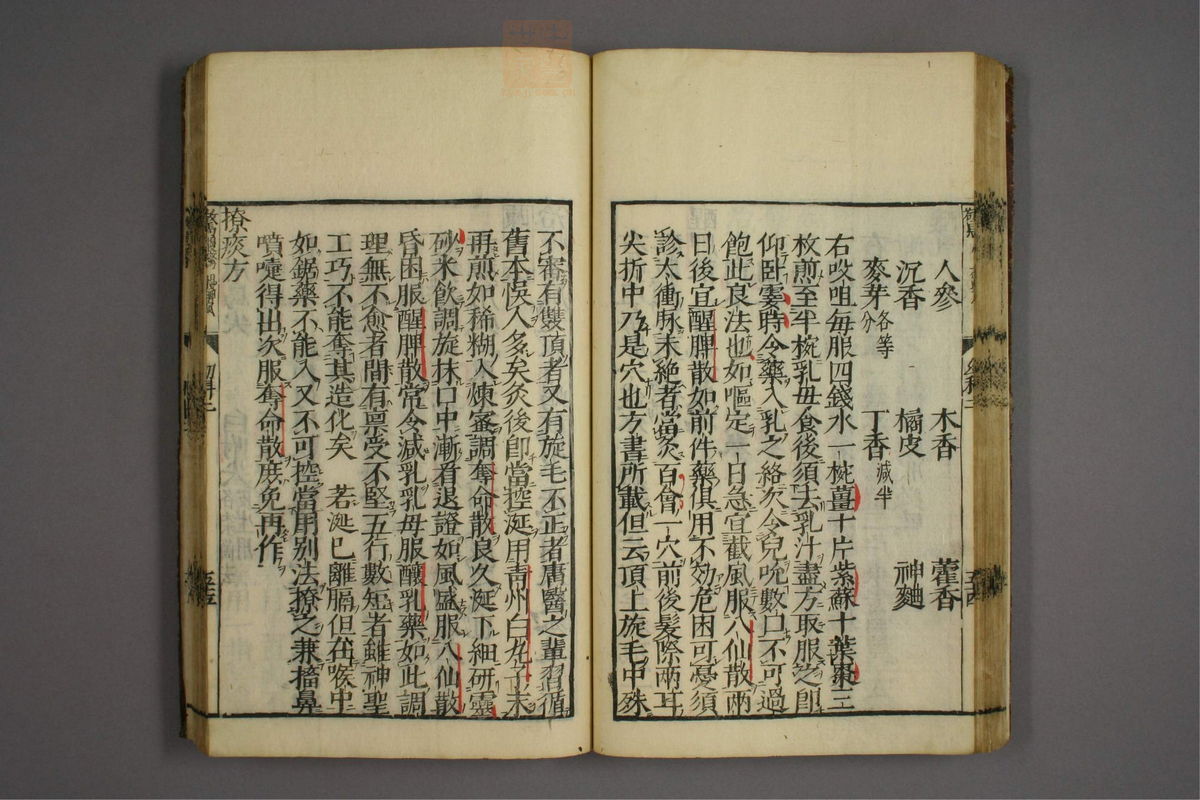 人參　木香　藿香
沉香　橘皮　神麯
麥芽各等分　丁香減半
右㕮咀每服四錢水一椀薑十片紫蘇十葉棗三
枚煎至半椀乳母食後須去乳汁盡方取服之即
仰卧霎時令藥入乳之絡次令兒吮數口不可過
飽此良法也如嘔定一日急宜截風服八仙散兩
日後宜醒脾散如前件藥俱用不効危困可憂須
診太衝脉未絶者當灸百會一穴前後髮際兩耳
尖折中乃是穴也方書所載但云頂上旋毛中殊
不審有雙頂者又有旋毛不正者庸醫之輩習循
舊本悞人多矣灸後即當控涎用青州白丸子末
再煎如稀糊入煉蜜調奪命散良久涎下細研靈
砂米飲調旋抹口中漸看退證如風盛服八仙散
昏困服醒脾散常令減乳乳母服釀乳藥如此調
理無不愈者間有禀受不堅五行數短者雖神聖
工巧不能奪其造化矣　若涎已離膈但在喉中
如鋸藥不能入又不可控當用别法撩之兼搐鼻
噴嚔得出次服奪命散庶免再作
撩痰方